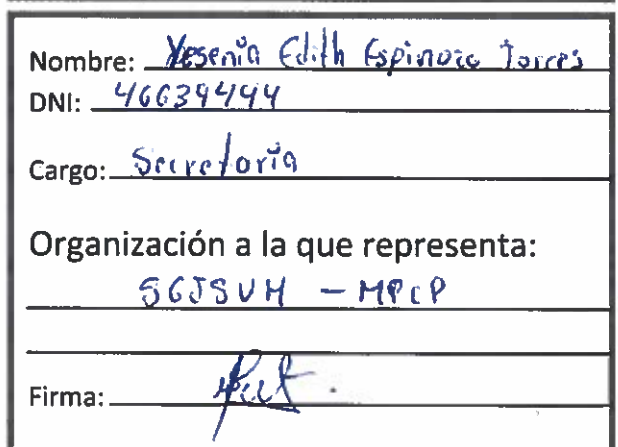 Nombre: Yesenia Edith Espinoza Torres
DNI: 46639494
Cargo: Secretoria
Organización a la que representa:
SGJSVM - MPCP
Firma: